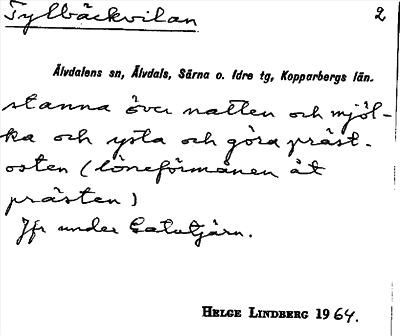 Tylbäckvilan 2
Älvdalens sn, Älvdals, Särna o. Idre tg, Kopparbergs län.
stanna över natten och mjöl-
ka och ysta och göra präst-
osten (löneförmånen åt
prästen)
Jfr under Gatutjärn.
HELGE LINDBERG 1964.